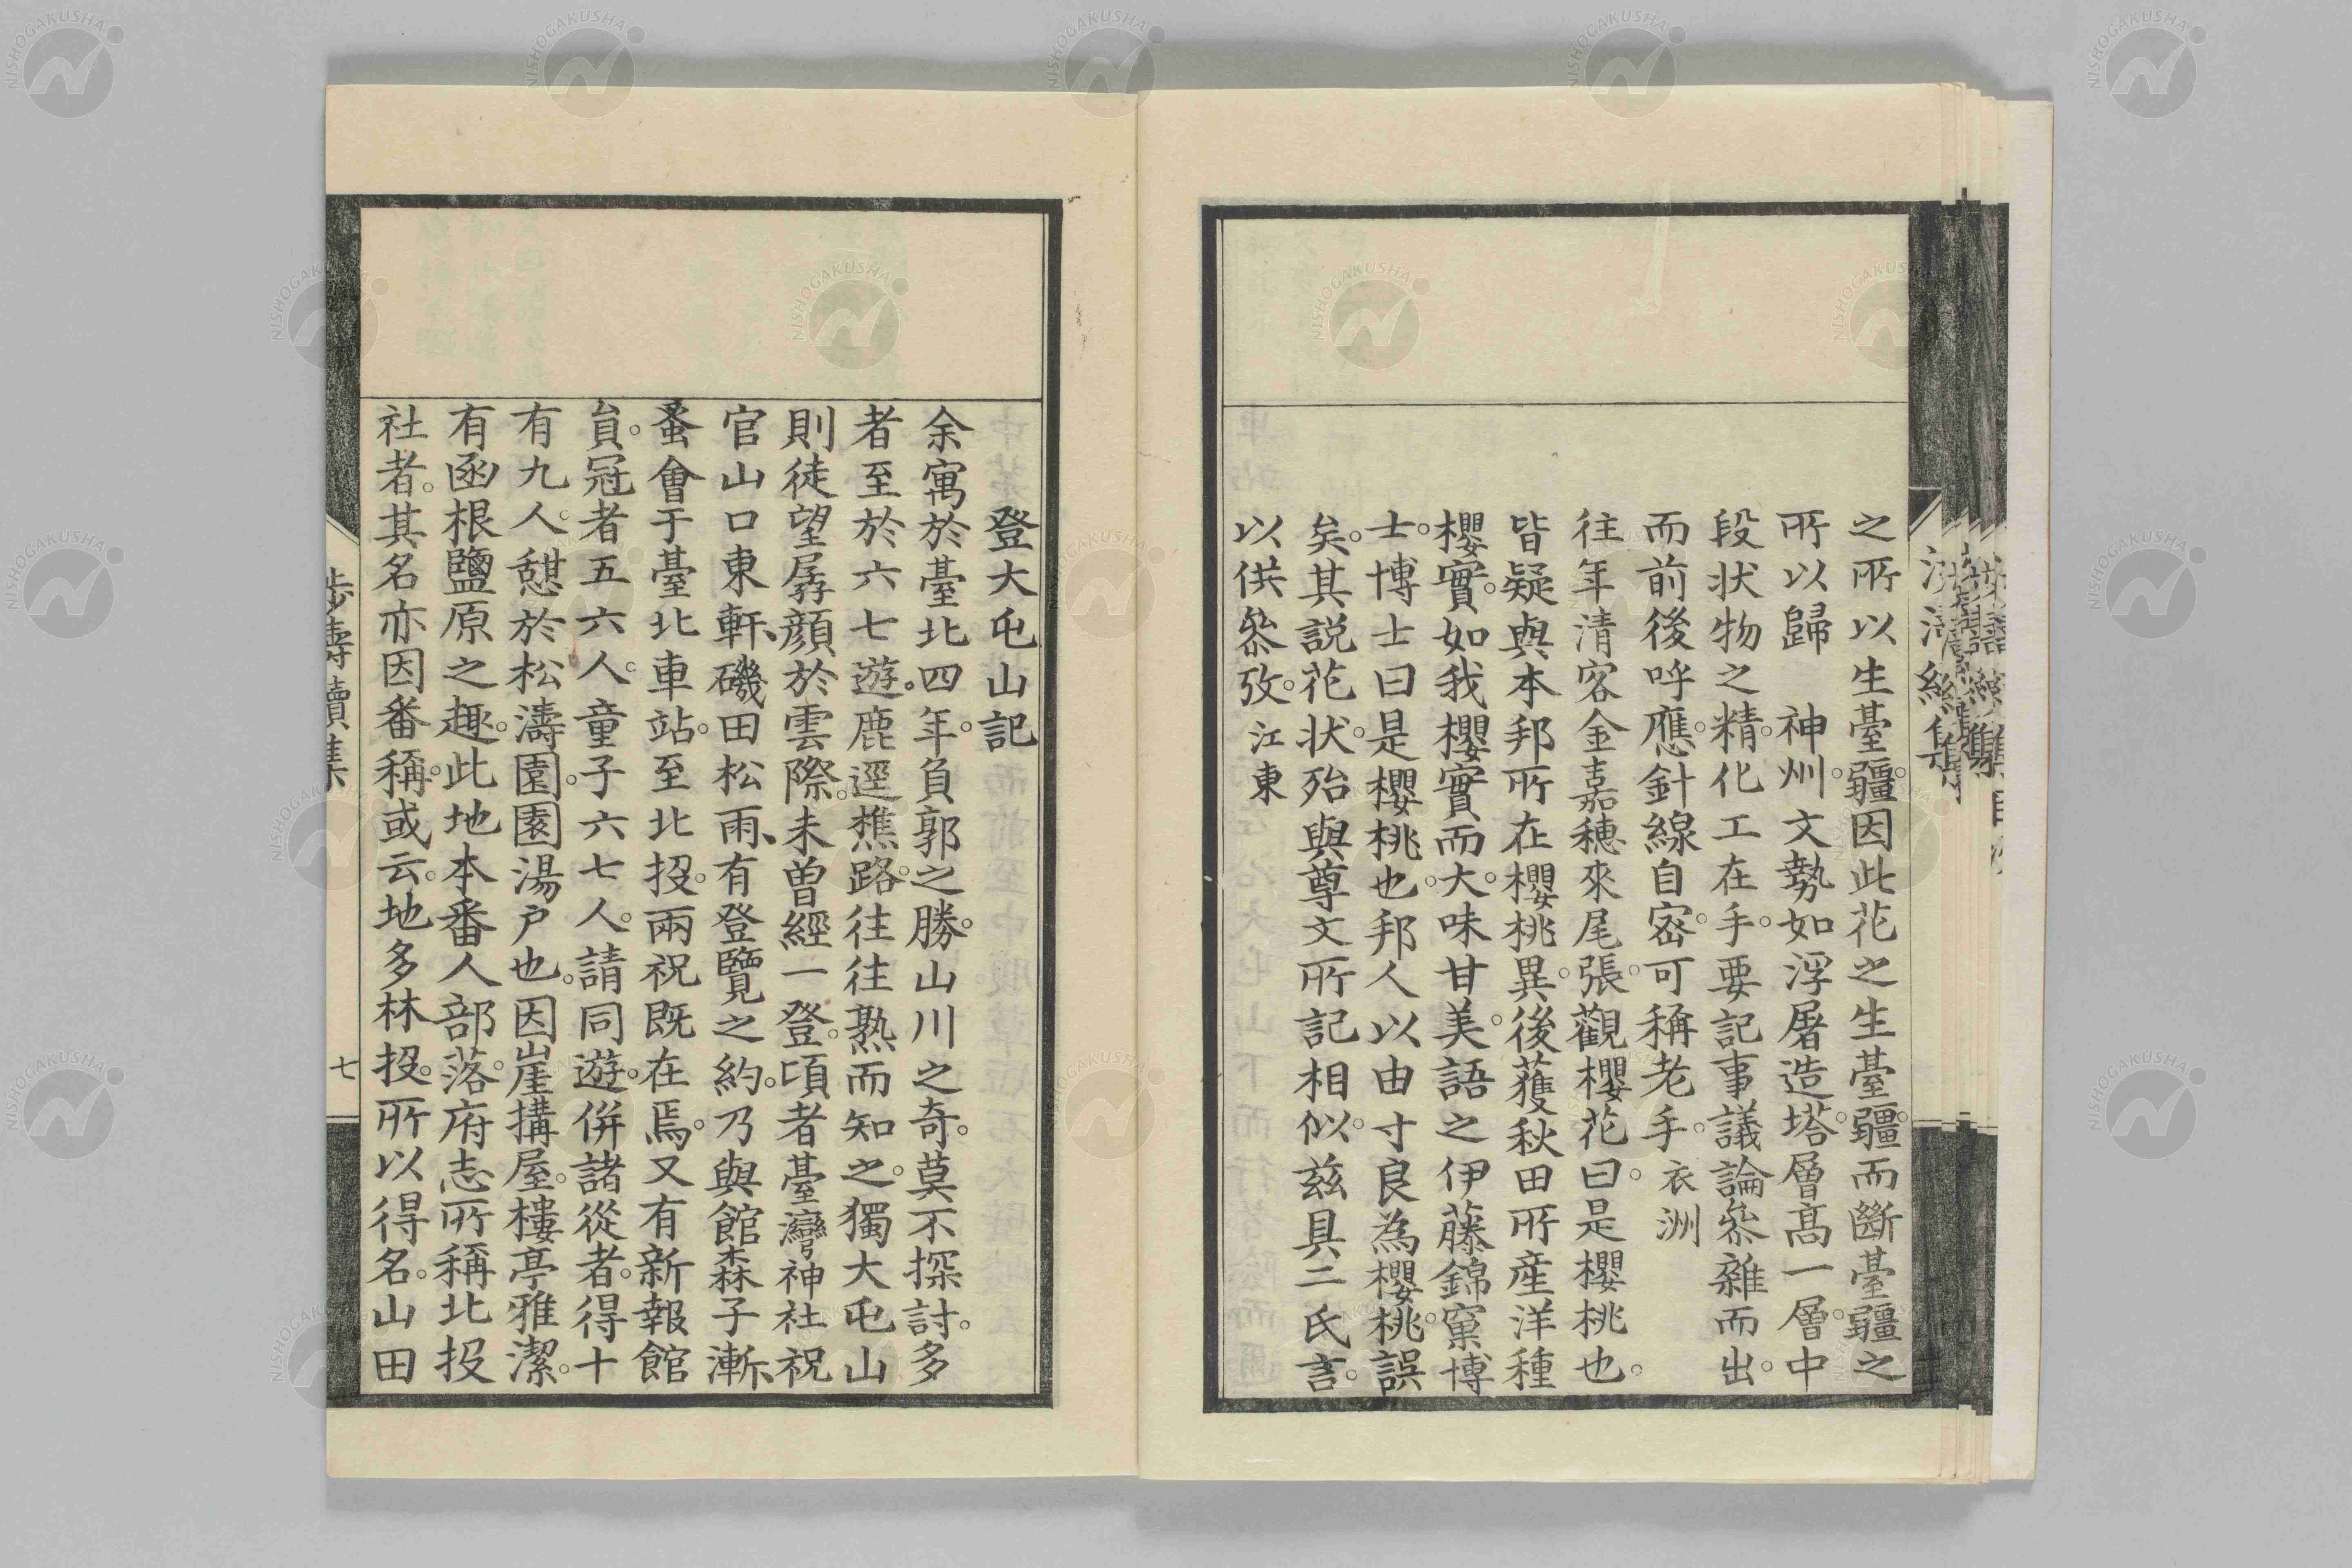 之所以生臺疆。因此花之生臺疆。而斷臺疆之
所以歸　神州。文勢如浮屠造塔。層高一層。中
段狀物之精。化工在手。要記事議論叅雜而出。
而前後呼應。針線自密。可稱老手。衣洲
往年清客金嘉穗來尾張。觀櫻花。曰是櫻桃也。
皆疑與本邦所在櫻桃異。後獲秋田所産洋種
櫻實。如我櫻實而大。味甘美。語之伊藤錦窠博
士。博士曰是櫻桃也。邦人以由寸良為櫻桃。誤
矣。其説花狀。殆與尊文所記相似。茲具二氏言。
以供叅攷。江東
登大屯山記
余寓於臺北四年。負郭之勝。山川之奇。莫不探討。多
者至於六七遊。鹿逕樵路。往往熟而知之。獨大屯山
則徒望孱顏於雲際。未曾經一登。頃者臺灣神社祝
官山口東軒、磯田松雨、有登覽之約。乃與館森子漸、
蚤會于臺北車站。至北投。兩祝既在焉。又有新報館
員。冠者五六人。童子六七人。請同遊。併諸從者。得十
有九人。憇於松濤園。園湯戶也。因崖搆屋。樓亭雅潔。
有函根鹽原之趣。此地本番人部落。府志所稱北投
社者。其名亦因番稱。或云。地多林投。所以得名。山田
七
NISHOGAKUSHA